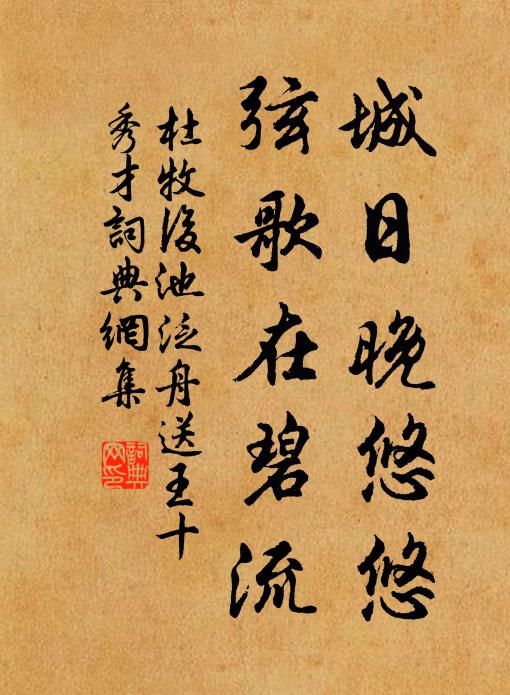 城日晚悠悠
弦歌在碧流
杜牧後池泛舟送王十
秀才詞典網集
詞典网印